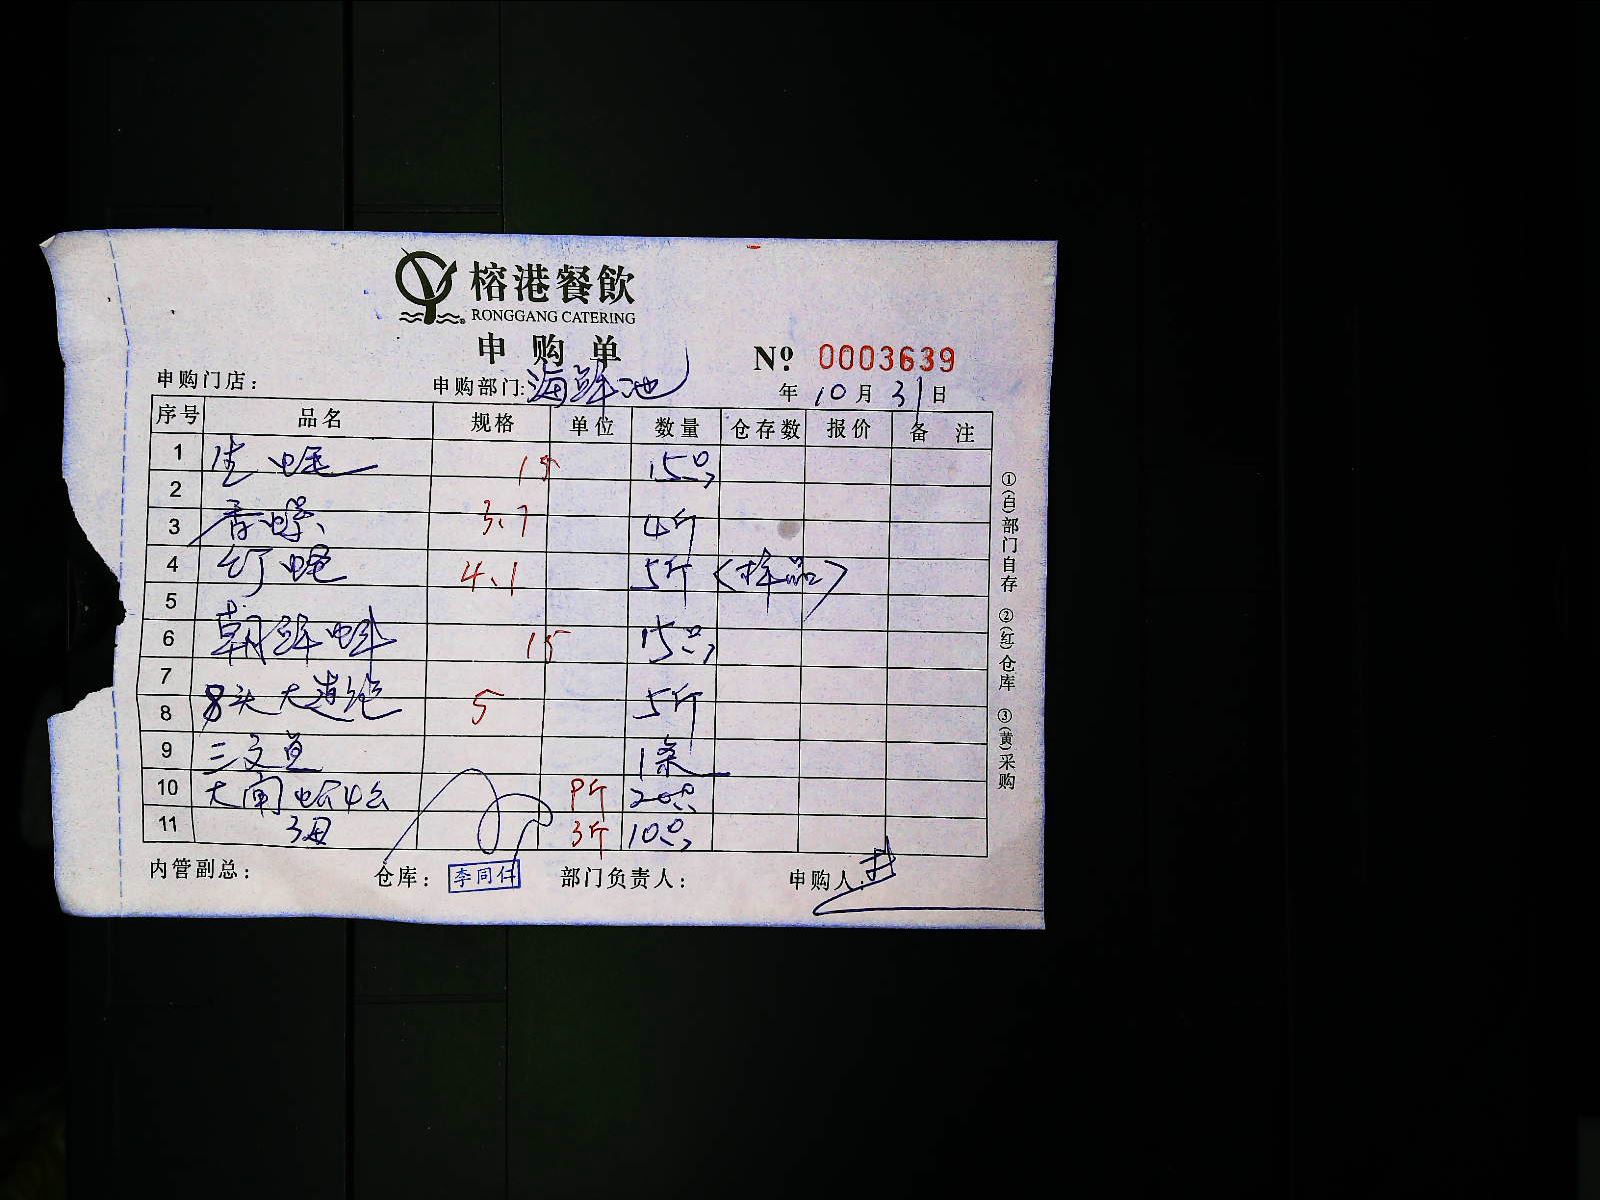 榕港餐飲
RONGGANG CATERING
申购单
Nº 0003639
申购门店： 申购部门: 海鲜池 年 10 月 31 日
序号 品名 规格 单位 数量 仓存数 报价 备 注
1 生蚝 15 15只
2
3 香螺 3.7 4斤
4 红 4.1 5斤 (样品)
5
6 朝鲜蚌 15 15只
7
8 8头大连鲍 5 5斤
9 三文鱼 1条
10 大闸蟹4公 斤 20只
11 3母 3斤 10只
内管副总： 仓库： 李同仟 部门负责人： 申购人：
①(白)部门自存 ②(红)仓库 ③(黄)采购